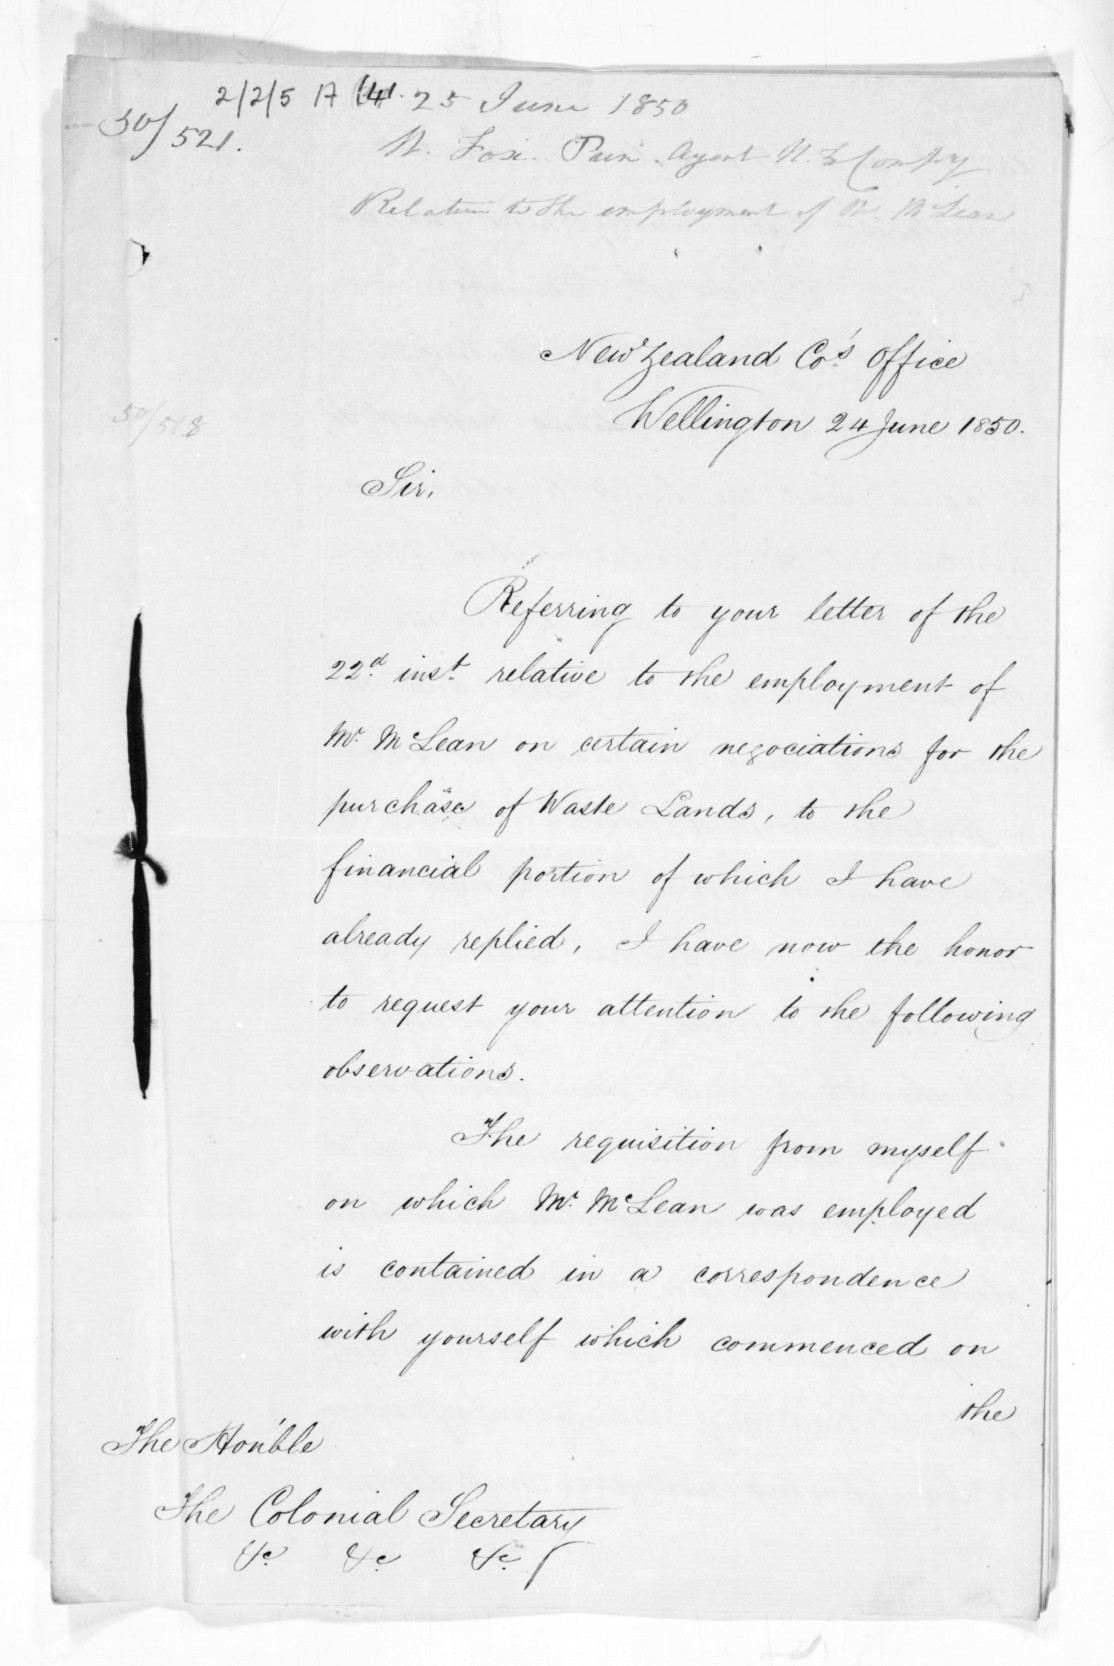 50/521.
2/2/5 A (4)
25 June 1850
W. Fox. Prin. Agent N. Z Compy
Relative to the employment of Mr. McLean
50/518
New Zealand Co's. Office
Wellington 24 June 1850.
Sir,
Referring to your letter of the
22d. inst. relative to the employment of
Mr. McLean on certain negociations for the
purchase of Waste Lands, to the
financial portion of which I have
already replied, I have now the honor
to request your attention to the following
observations.
The requisition from myself
on which Mr. McLean was employed
is contained in a correspondence
with yourself which commenced on
the
The Hon'ble
The Colonial Secretary
&c. &c. &c.